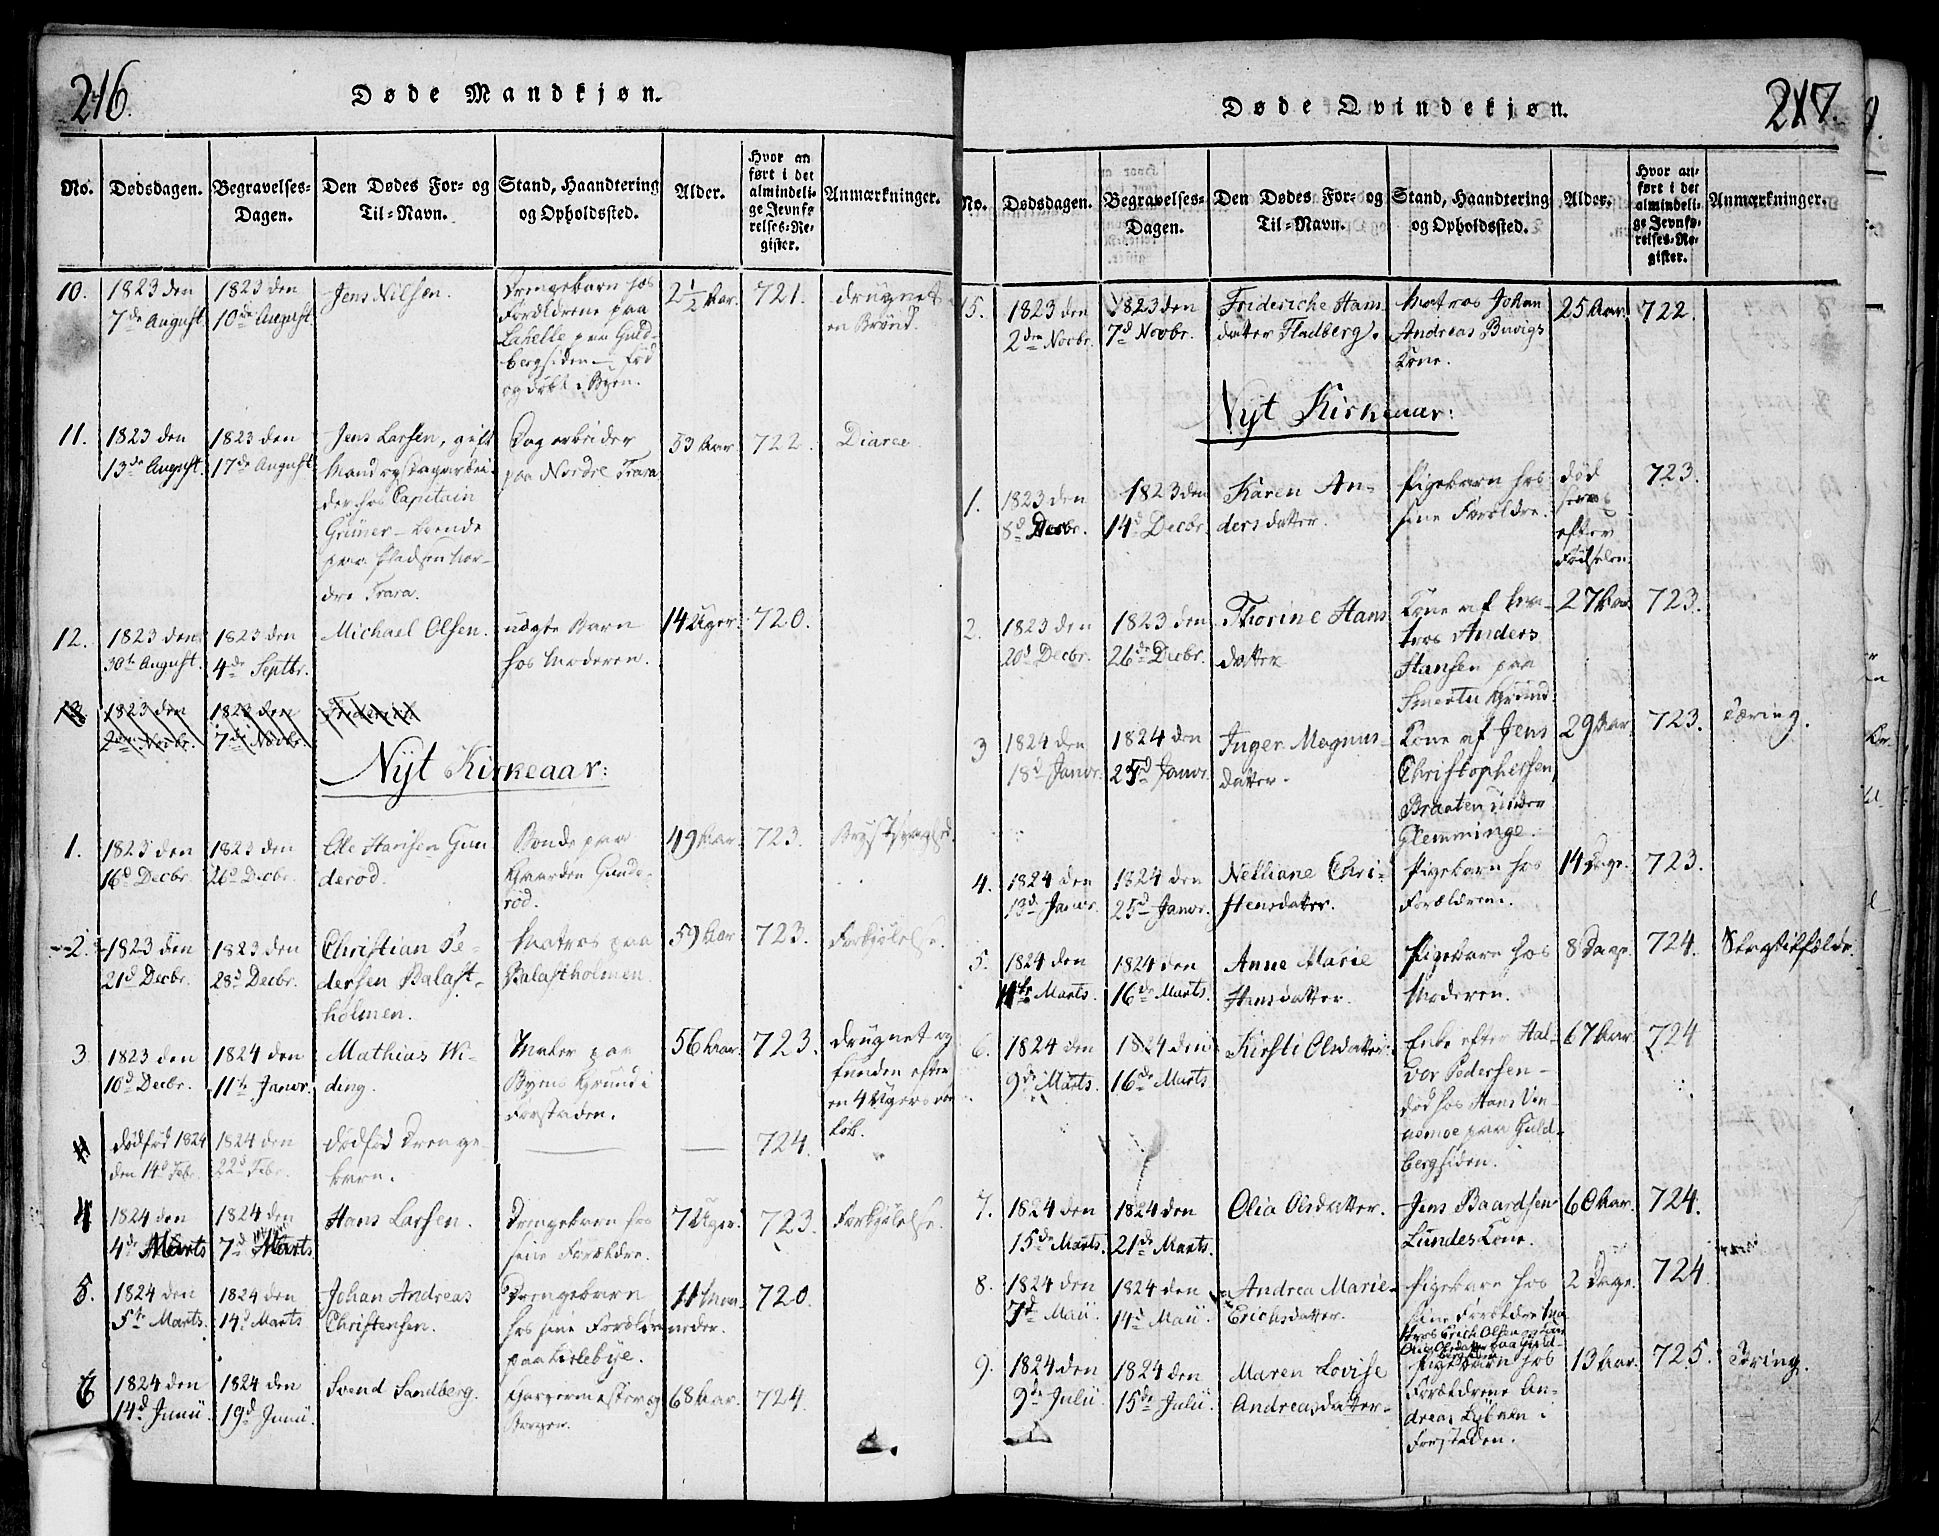 216.
Døde Mandkjøn.
No.
Dødsdagen.
Begravelses-
Dagen.
Den Dødes For- og
Til-Navn.
Stand, Haandtering
og Opholdssted.
Alder.
Hvor an
ført i det
almindeli-
ge Jevnfø
relses-Re-
gister.
Anmærkninger.
10.
1823 den
7de August
1823 den
10de August
Jens Nilsen.
Drengebarn hos
Forældrene paa
Labelle paa Guld-
bergsiden – Fød
og døbt i Byen.
2½ Aar.
721.
druknet
en Brönd.
11.
1823 den
13de August.
1823 den
17de August
Jens Larsen, gift
Mand og Dagarbei-
der hos Capitain
Grüner – boende
paa Pladsen Nor-
dre Trara.
Dagarbeider
paa Nordre Trara
53 Aar
722.
Diaree.
12.
1823 den
30te August.
1823 den
4de Septbr.
Michael Olsen.
uægte Barn
hos Moderen.
14 Uger.
720.
13
1823 den
2den Novbr.
1823 den
7de Novbr.
Nyt Kirkeaar:
1.
1823 den
16d Decbr.
1823 den
26d Decbr.
Ole Hansen Gun
derod.
Bonde paa
Gaarden Gunde-
rød.
49 Aar
723.
Brystsvaghed.
2.
1823 den
21d Decbr.
1823 den
28d Decbr.
Christian Pe-
dersen Balast-
holmen.
Matros paa
Balastholmen.
59 Aar
723.
Forkjølelse.
3
1823 den
10d Decbr.
1824 den
11te Janvr.
Mathias Wi-
ding.
Maler paa
Byens Grund i
Forstaden.
56 Aar.
723.
druknet og
funden efter
en 4 Ugers
løb.
dödfød 1824
den 14d Febr.
1824 den
22d Febr.
dødfød Drenge-
barn.
724.
4
1824 den
4de Marts
1824 den
7d Marts
Hans Larsen.
Drengebarn hos
sine Forældre.
7 Uger.
723.
Forkjølelse.
5.
1824 den
5te Marts.
1824 den
14d Marts
Johan Andreas
Christensen.
Drengebarn
hos sine Forældre
paa Kirkebye.
11 Maa-
neder.
720.
6
1824 den
14d Junii.
1824 den
19d Junii.
Svend Sandberg.
Garvermester og
Borger.
68 Aar.
724.
217.
Døde Qvindekjøn.
No.
Dødsdagen.
Begravelses-
Dagen.
Den Dødes For- og
Til-Navn.
Stand, Haandtering
og Opholdssted.
Alder.
Hvor an-
ført i det
almindeli-
ge Jevnfø-
relses-Re-
gister.
Anmærkninger.
15.
1823 den
2den Novbr.
1823 den
7d Novbr.
Frideriche Hans
datter Fladberg.
Matros Johan
Andreas Buvigs
Kone.
25 Aar.
722.
Nyt Kirkeaar:
1.
1823 den
8d Decbr.
1823 den
14d Decbr.
Karen An-
dersdatter.
Pigebarn hos
sine Forældre.
død
strax
efter
Fødselen.
723.
2.
1823 den
20d Decbr.
1823 den
26de Decbr.
Thorine Hans
datter
Kone af Ma-
tros Anders
Hansen paa
Smertu Grund.
27 Aar
723.
3
1824 den
18d Janvr.
1824 den
25d Janvr.
Inger Magnus-
datter.
Kone af Jens
Christophersen,
Braaten under
Glemminge.
29 Aar
723.
Tæring.
4.
1824 den
13d Janvr.
1824 den
25d Janvr.
Nelliane Chri-
stensdatter.
Pigebarn hos
Forældrene.
14 Dage.
723.
5.
1824 den
11te Marts.
1824 den
16de Marts.
Anne Marie
Hansdatter.
Pigebarn hos
Moderen.
8 Dage
724.
Slagtilfælde.
6.
1824 den
9de Marts.
1824 den
16de Marts
Kirsti Olsdatter.
Enke efter Hal-
vor Pedersen –
død hos Hans Vin-
nemoe paa Guld-
bergsiden.
67 Aar
724
7.
1824 den
15de Marts.
1824 den
21de Marts.
Olia Olsdatter.
Jens Baardsen
Lundes Kone.
60 Aar.
724.
8.
1824 den
7d Maii.
1824 den
14d Maii.
Andrea Marie
Erichsdatter.
Pigebarn hos
sine Forældre
Erich Olsen og
Olia Olsdatter paa Guld-
bergsiden
2 Dage.
724.
9.
1824 den
9de Julii
1824 den
15de Julii
Maren Lovise
Andreasdatter.
Pigebarn hos
Forældrene An-
dreas i
Forstaden.
13 Aar.
725.
Tæring.